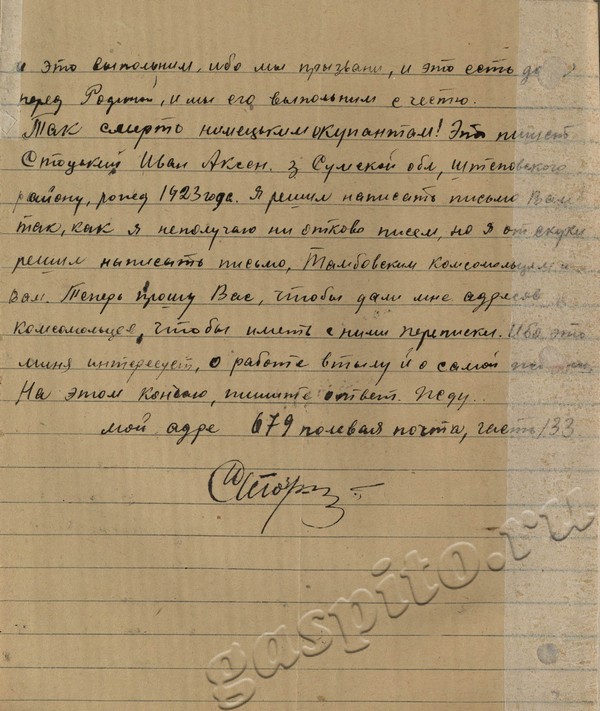 и это выполним, ибо мы призвани, и это есть
перед Родиной, и мы его выпольним с честю.
Так смерть нимецьким окупантам! Это пишет
Стоцький Иван Аксен. з Сумской обл, Штеповского
району, рожд 1923 года. Я решил написать письмо Вам
так, как я неполучаю ни отково писем, но я от скуки
решил написать письмо, Тамбовским комсомольцам и
Вам. Теперь прошу Вас, чтобы дали мне адресов
комсомольцев, чтобы иметь с ними переписки. Ибо это
миня интересует, о работе втылу и о самой
На этом кончаю, пишите ответ. Жду..
мой адре 679 полевая почта, часть 133
gaspito.ru